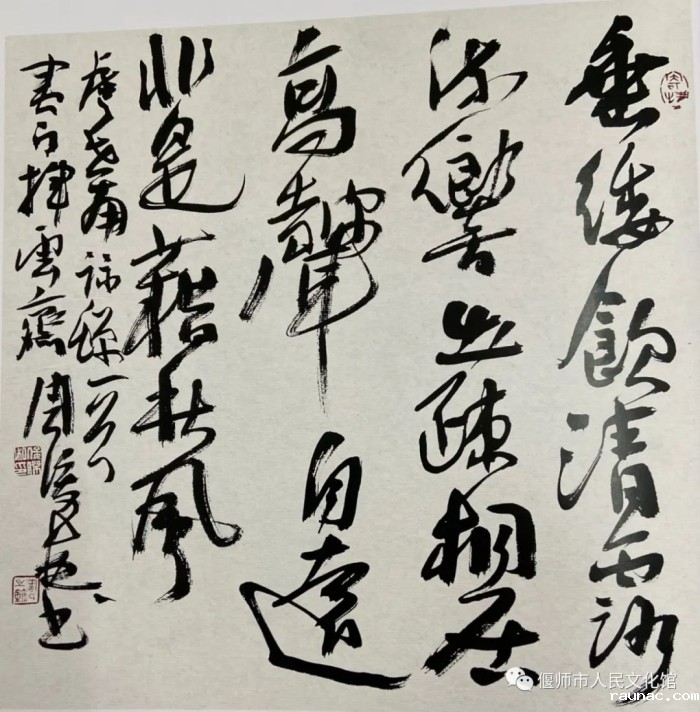 垂緌飲清露
流響出疎桐居
高聲自遠
非是藉秋風
虞世南詠蟬一首
書于揮雲齋周
偃师市人民文化馆
raunac.com